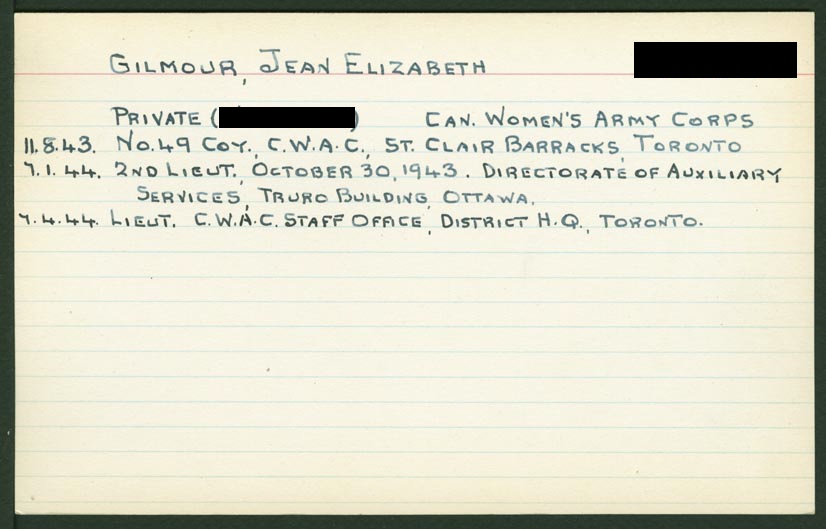 GILMOUR, JEAN ELIZABETH
PRIVATE ( ) CAN. WOMEN'S ARMY CORPS
11.8.43. NO.49 COY., C.W.A.C., ST. CLAIR BARRACKS, TORONTO
7.1.44. 2ND LIEUT., OCTOBER 30, 1943. DIRECTORATE OF AUXILIARY
SERVICES, TRURO BUILDING, OTTAWA.
7.4.44. LIEUT. C.W.A.C. STAFF OFFICE, DISTRICT H.Q., TORONTO.